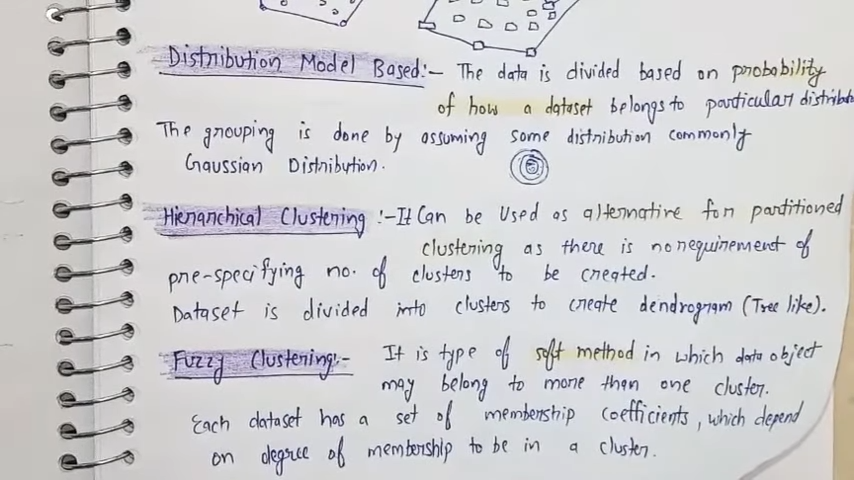 Distribution Model Based:- The data is divided based on probability
of how a dataset belongs to particular
The grouping is done by assuming some distribution commonly
Gaussian Distribution.
Hierarchical Clustering :- It Can be Used as alternative for partitioned
clustering as there is no requirement of
pre-specifying no. of clusters to be created.
Dataset is divided into clusters to create dendrogram (Tree like).
Fuzzy Clustering:- It is type of soft method in which data object
may belong to more than one cluster.
Each dataset has a set of membership coefficients, which depend
on degree of membership to be in a cluster.